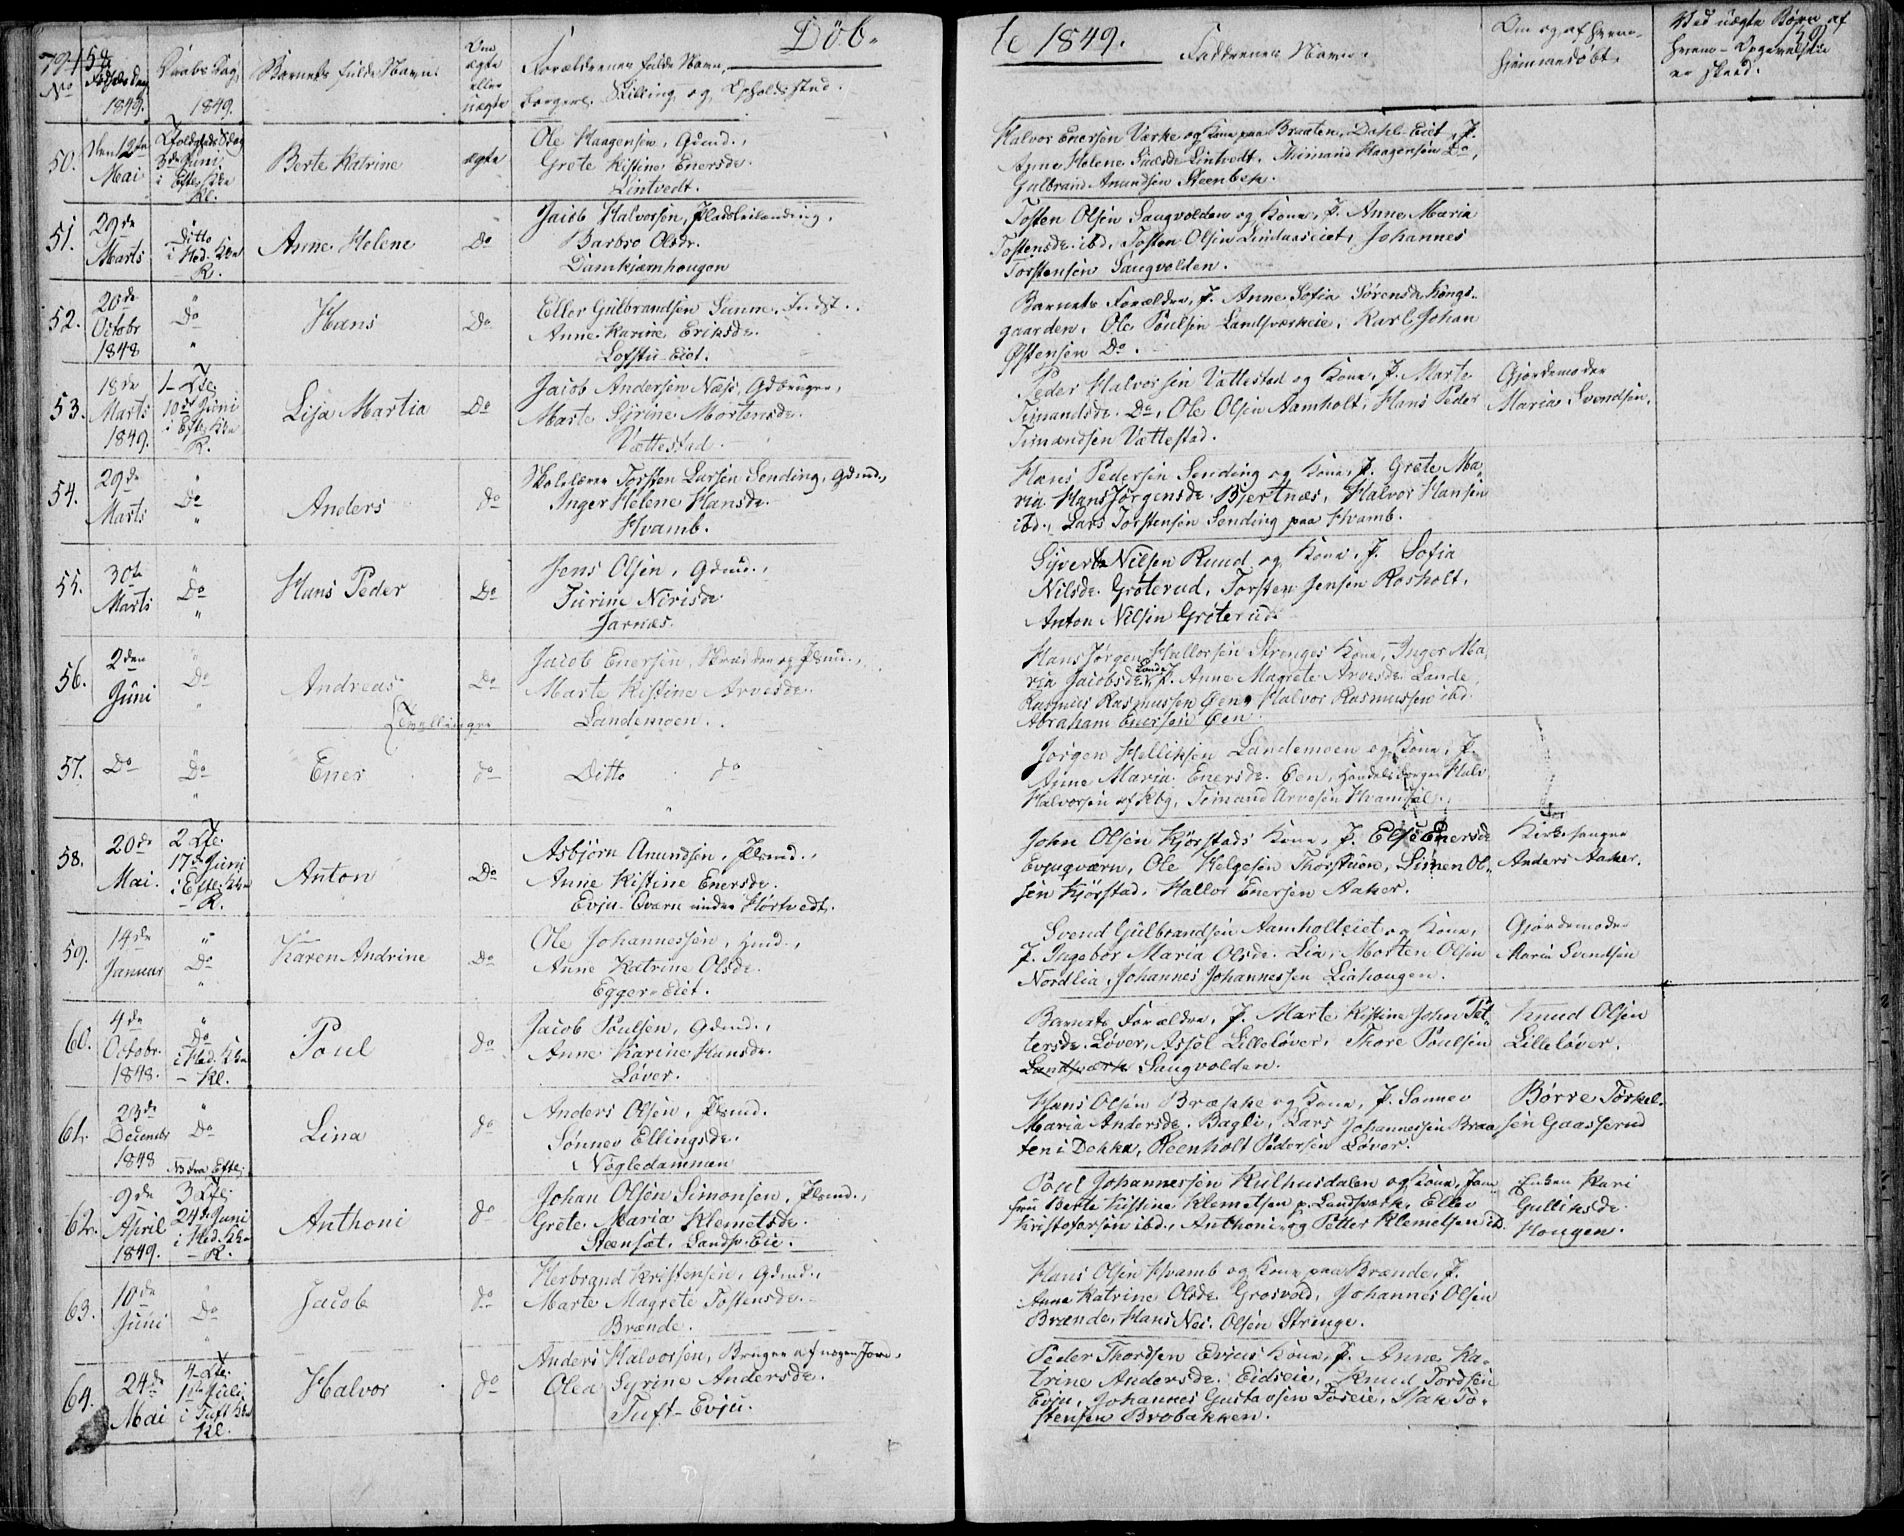 Döb-
te 1849.
No
Fødsels Dag 1849.
Daabs Dag 1849.
Barnets fulde Navn.
Om ægte eller uægte
Forældrenes fulde Navn, borgerl. Stilling og Opholdssted.
Faddernes Navne.
Om og af hvem hjemmedøbt.
50.
Den 12te Mai
3de Juni
Berte Katrine
ægte
Ole Haagensen, Gdmd.,
Grete Kistine Enersdr.
Lintvedt.
Halvor Enersen Værke og Kone paa Braaten, Dahl-Eiet, P.
Anne Helene Lintvedt, Thimand Haagensen Do,
Gulbrand Amundsen Steenbek.
51.
29de Marts
Ditto i Hed. Kke
Anne Helene
Do
Jacob Halvorsen,
Barbro Olsdr.
Damkjærnhougen
Tosten Olsen Saugvolden og Kone, P. Anne Maria
Tostensdr. ibd., Tosten Olsen Lindaaseiet, Johannes
Torstensen Saugvolden.
52.
20de Octobr 1848
Do
Hans
Do
Ellef Gulbrandsen Sanne, Indst.
Anne Karine Eriksdr.
Lofstu-Eiet.
Barnets Forældre, P. Anne Sofia Sørensdr Kongs-
gaarden, Ole Poulsen Landsværkeie, Karl Johan
Østensen Do.
53.
18de Marts 1849.
10de Juni
Lisa Martia
Do
Jacob Andersen Næss, Gdbruger,
Marte Syrine Mortensdr.
Vættestad.
Peder Halvorsen Vattestad og Kone, P. Marte
Timandsdr. Do, Ole Olsen Aamholt, Hans Peder
Timandsen Vættestad.
Gjordemoder
Maria Svendsen.
54.
29de Marts
Do
Anders
do
Skolelærer Torsten Larsen Sending, Gdmd.,
Inger Helene Hansdr.
Hvamb.
Hans Pedersen Sending og Kone, P. Grete Ma-
ria HansJörgensdr. Bjertnæs, Halvor Hansen
ibd., Lars Torstensen Sending paa Hvamb.
55.
30te Marts
Do
Hans Peder
Do
Jens Olsen, Gdmd.,
Turine Nirisdr
Jarnæs.
Syvert Nilsen Ruud og Kone, P. Sofia
Nilsdr. Groterud, Torsten Jensen Rosholt,
Anton Nilsen Groterud.
56.
2den Juni
Do
Andreas
Tvillinger
Do
Jacob Enersen, Skrædder og Plsmd.,
Marte Kistine Arvesdr.
Landemoen.
HansJörgen Hallorsen Strenges Kone, Inger Ma-
ria Jacobsdr. Lande, P. Anne Magrete Arvesdr. Lande,
Rasmus Rasmussen Øen, Halvor Rasmussen ibd.
Abraham Enersen Øen.
57.
Do
Do
Ener
do
Ditto do
Jörgen Hellihsen Landemoen og Kone, P.
Anne Maria Enersdr. Øen, Handelsborger Halv.
Halvorsen af Kbg, Timand Arvesen Hvamsal.
58.
20de Mai.
17de Juni
Anton
Do
Asbjörn Amundsen, Plsmd.,
Anne Kistine Enersdr.
Evju-Qværn under Hörtvedt.
John Olsen Kjörstads Kone, P. Else Enersdr
Evjuqværn, Ole Helgesen Thorstuen, Simen Ol-
sen Kjörstad, Hallor Enersen Aaker.
Kirkesanger
Anders Aaker.
59.
14de Januar
Do
Karen Andrine
Do
Ole Johannessen, Hmd.,
Anne Katrine Olsdr.
Egger-Eiet.
Svend Gulbrandsen Aamholteiet og Kone,
P. Ingebor Maria Olsdr. Lia, Morten Olsen
Nordlia, Johannes Johannessen Liahougen.
Gjordemoder
Maria Svendsen
60.
4de Octobr. 1848.
Do
i Hed. Kke
Poul
do
Jacob Poulsen, Gdmd.,
Anne Karine Hansdr.
Löver.
Barnets Forældre, P. Marte Kistine John Pet-
tersdr. Löver, Assel Lillelöver, Thore Poulsen
Landsværk Saugvolden.
Knud Olsen
Lillelöver.
61.
23de Decembr 1848
Do
Lina
do
Anders Olsen, Plsmd.
Sönnev Ellingsdr.
Nögledammen
Hans Olsen Brække og Kone, P. Sonnev
Maria Andersdr. Bagli, Lars Johannessen Braa-
ten i Dokka, Reenholt Pedersen Löver.
Börre Torkel-
sen Gaasserud
62.
9de April 1849.
24de Juni
i Hed. Kke
Anthoni
do
Johan Olsen Simonsen, Plsmd.,
Grete Maria Klemetsdr.
Steensæt, Landsv. Eie.
Poul Johannessen Kulhusdalen og Kone, Jom-
fru Berte Kistine Klemetsen p. Landsværk, Ellev
Kristofersen ibd., Anthoni og Petter Klemetsen ibd.
Enken Kari
Gulliksdr.
Hougen.
63.
10de Juni
Do
Jacob
do
Herbrand Kristensen, Gdmd.,
Marte Magrete Tostensdr.
Brænde.
Hans Olsen Hvamb og Kone paa Brænde, P.
Anne Katrine Olsdr. Grosvold, Johannes Olsen
Brænde, Hans Nei. Olsen Strenge.
64.
24de Mai
1ste Juli
i Tuft Kke
Halvor
do
Anders Halvorsen, Bruger af nogen Jord,
Olea Syrine Andersdr.
Tuft-Evju.
Peder Thordsen Evjus Kone, P. Anne Ka-
trine Andersdr. Eidseie, Knud Tordsen
Evju, Johannes Gustavsen Foseie, Isak To-
stensen Brobakken.